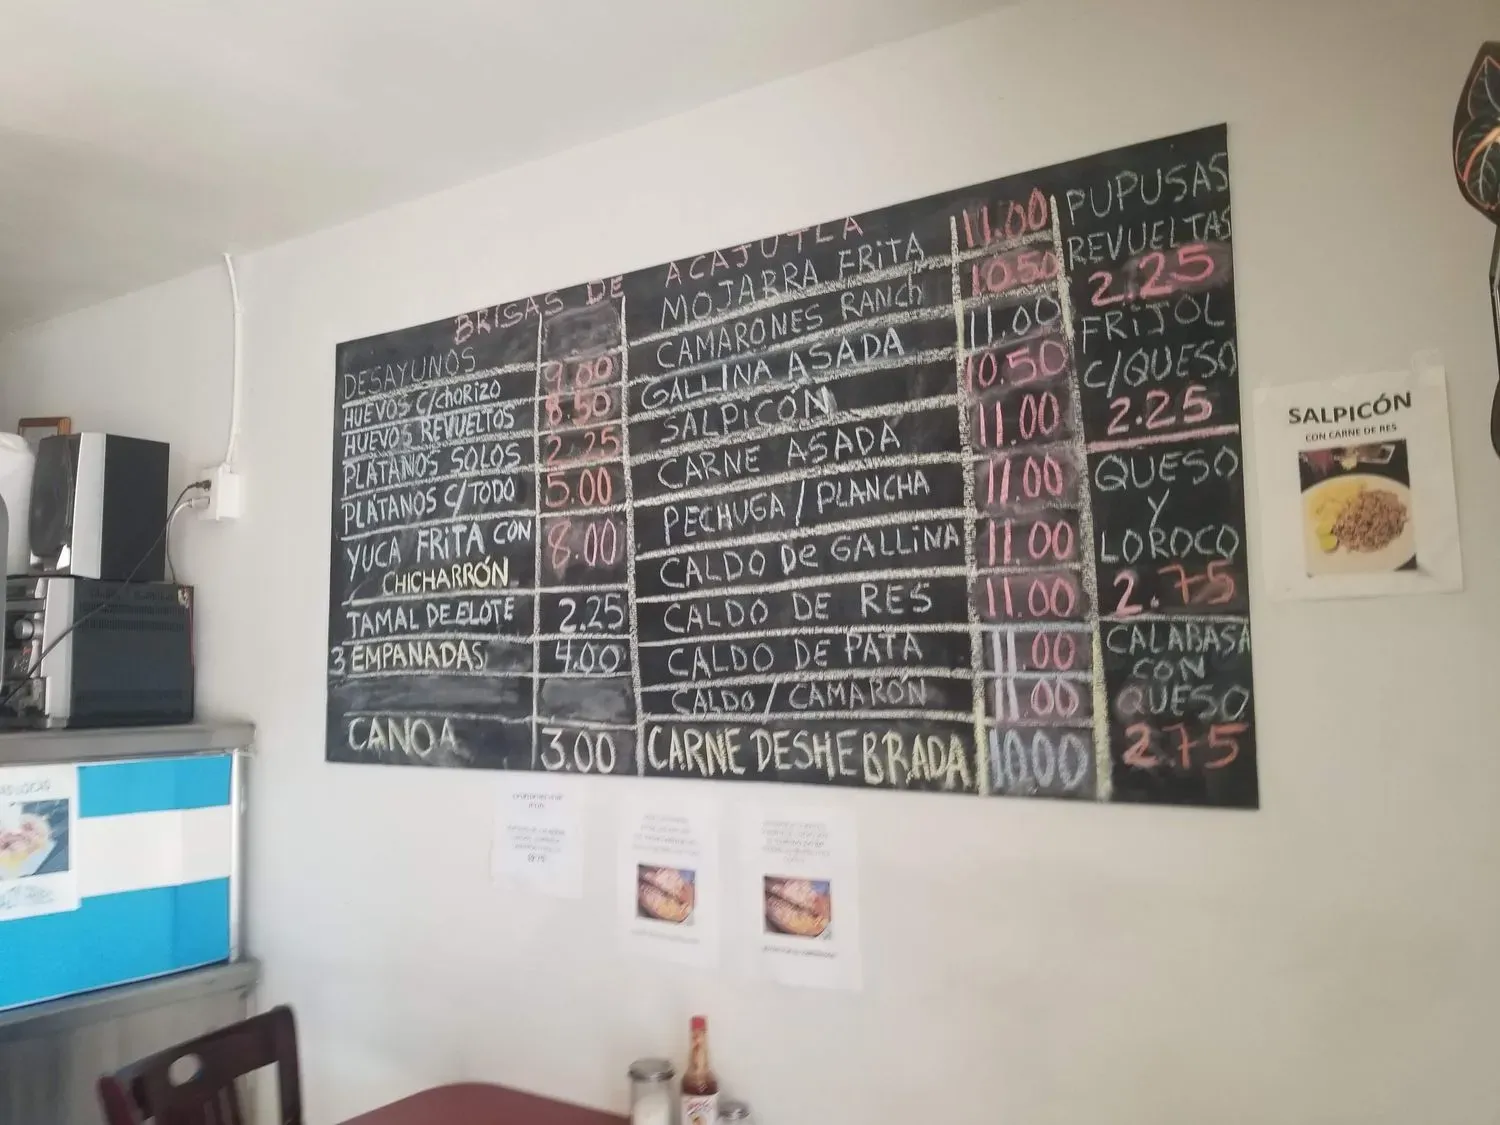 BRISAS DE ACAJUTLA
DESAYUNOS
HUEVOS C/CHORIZO 9.00
HUEVOS REVUELTOS 8.50
PLATANOS SOLOS 2.25
PLATANOS C/TODO 5.00
YUCA FRITA CON
CHICHARRÓN 8.00
TAMAL DE ELOTE 2.25
3 EMPANADAS 4.00
CANOA 3.00
MOJARRA FRITA 11.00
CAMARONES RANCH 10.50
GALLINA ASADA 11.00
SALPICÓN 10.50
CARNE ASADA 11.00
PECHUGA/PLANCHA 11.00
CALDO De GALLiNA 11.00
CALDO DE RES 11.00
CALDO DE PATA 11.00
CALDO/CAMARÓN 11.00
CARNE DESHEBRADA 10.00
PUPUSAS
REVUELTAS
2.25
FRIJOL
C/QUESO
2.25
QUESO
Y
LOROCO
2.75
CALABASA
CON
QUESO
2.75
SALPICÓN
CON CARNE DE RES